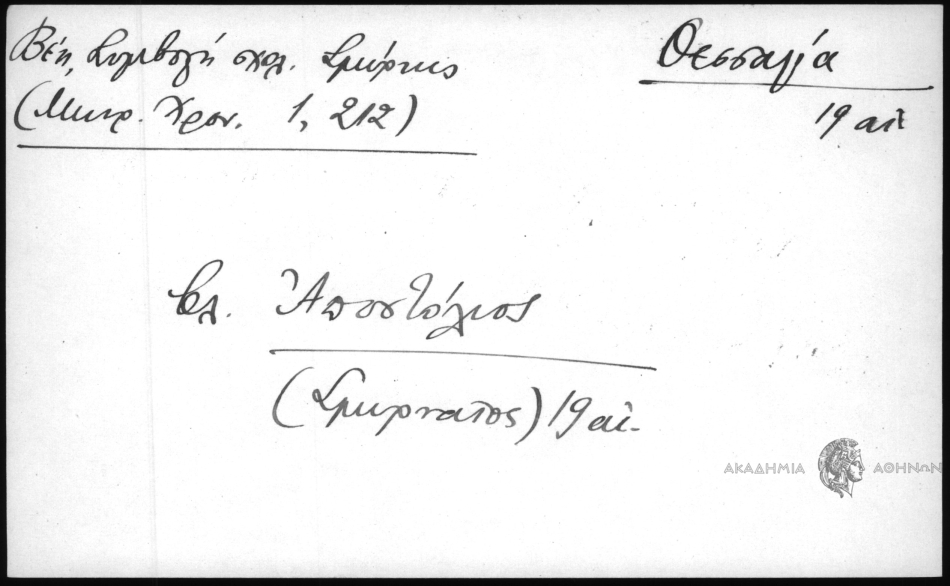 Βέη, Συμβολή σχολ. Σμύρνης
(Μικρ. Χρον. 1, 212)
Θεσσαλία
19 αἰ
βλ. Ἀποστόλιος
(Σμυρναῖος) 19 αἰ.
ΑΚΑΔΗΜΙΑ ΑΘΗΝΩΝ